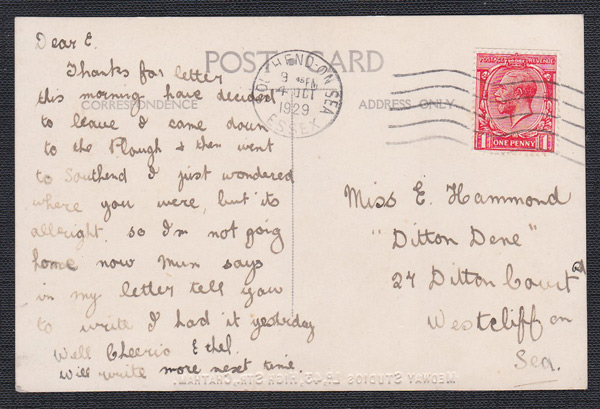 Dear E.
Thanks for letter
this morning have decided
to leave & came down
to the Plough & then went
to Southend I just wondered
where you were, but its
allright. so I'm not goig
home now Mum says
in my letter tell you
to write I had it yesterday
Well Cheerio Ethel.
Will write more next time.
POST CARD
CORRESPONDENCE
ADDRESS ONLY
SOUTHEND ON SEA
4 OCT
1929
ESSEX
POSTAGE REVENUE
ONE PENNY
Miss E. Hammond
"Ditton Dene"
24 Ditton Court Rd
Westcliff on
Sea.
MEDWAY STUDIOS LD, 43, HIGH STR, CHATHAM.